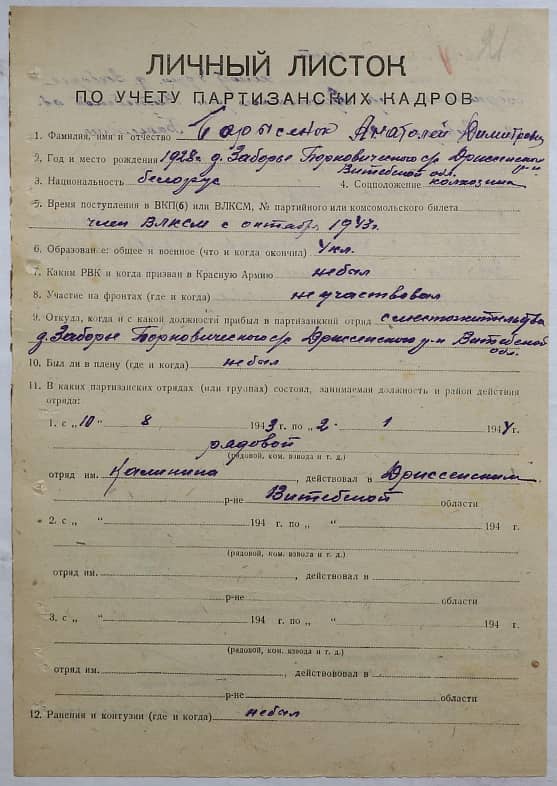 21
ЛИЧНЫЙ ЛИСТОК
ПО УЧЕТУ ПАРТИЗАНСКИХ КАДРОВ
1. Фамилия, имя и отчество Анатолей Димитрович
2. Год и место рождения 1928г. д. Заборье Борковического с/с Дриссенского р-н
Витебской обл.
3. Национальность белорус 4. Соцположение колхозник
5. Время поступления в ВКП(б) или ВЛКСМ, № партийного или комсомольского билета
член ВЛКСМ с октябр. 1943 г.
6. Образование: общее и военное (что и когда окончил) 4 кл.
7. Каким РВК и когда призван в Красную Армию небал
8. Участие на фронтах (где и когда) не участвовал
9. Откуда, когда и с какой должности прибыл в партизанский отряд с местожительства
д. Заборье Борковического с/с Дриссенского р-н Витебской
обл.
10. Был ли в плену (где и когда) небал
11. В каких партизанских отрядах (или группах) состоял, занимаемая должность и район действия
отряда:
1. с „10“ 8 1943 г. по „2“ 1 1944 г.
рядовой
(рядовой, ком. взвода и т. д.)
отряд им. Калинина, действовал в Дриссенским
р-не Витебской области
2. с „ “ 194 г. по „ “ 194 г.
(рядовой, ком. взвода и т. д.)
отряд им. , действовал в
р-не области
3. с „ “ 194 г. по „ “ 194 г.
(рядовой, ком. взвода и т. д.)
отряд им. , действововал в
р-не области
12. Ранения и контузии (где и когда) небал